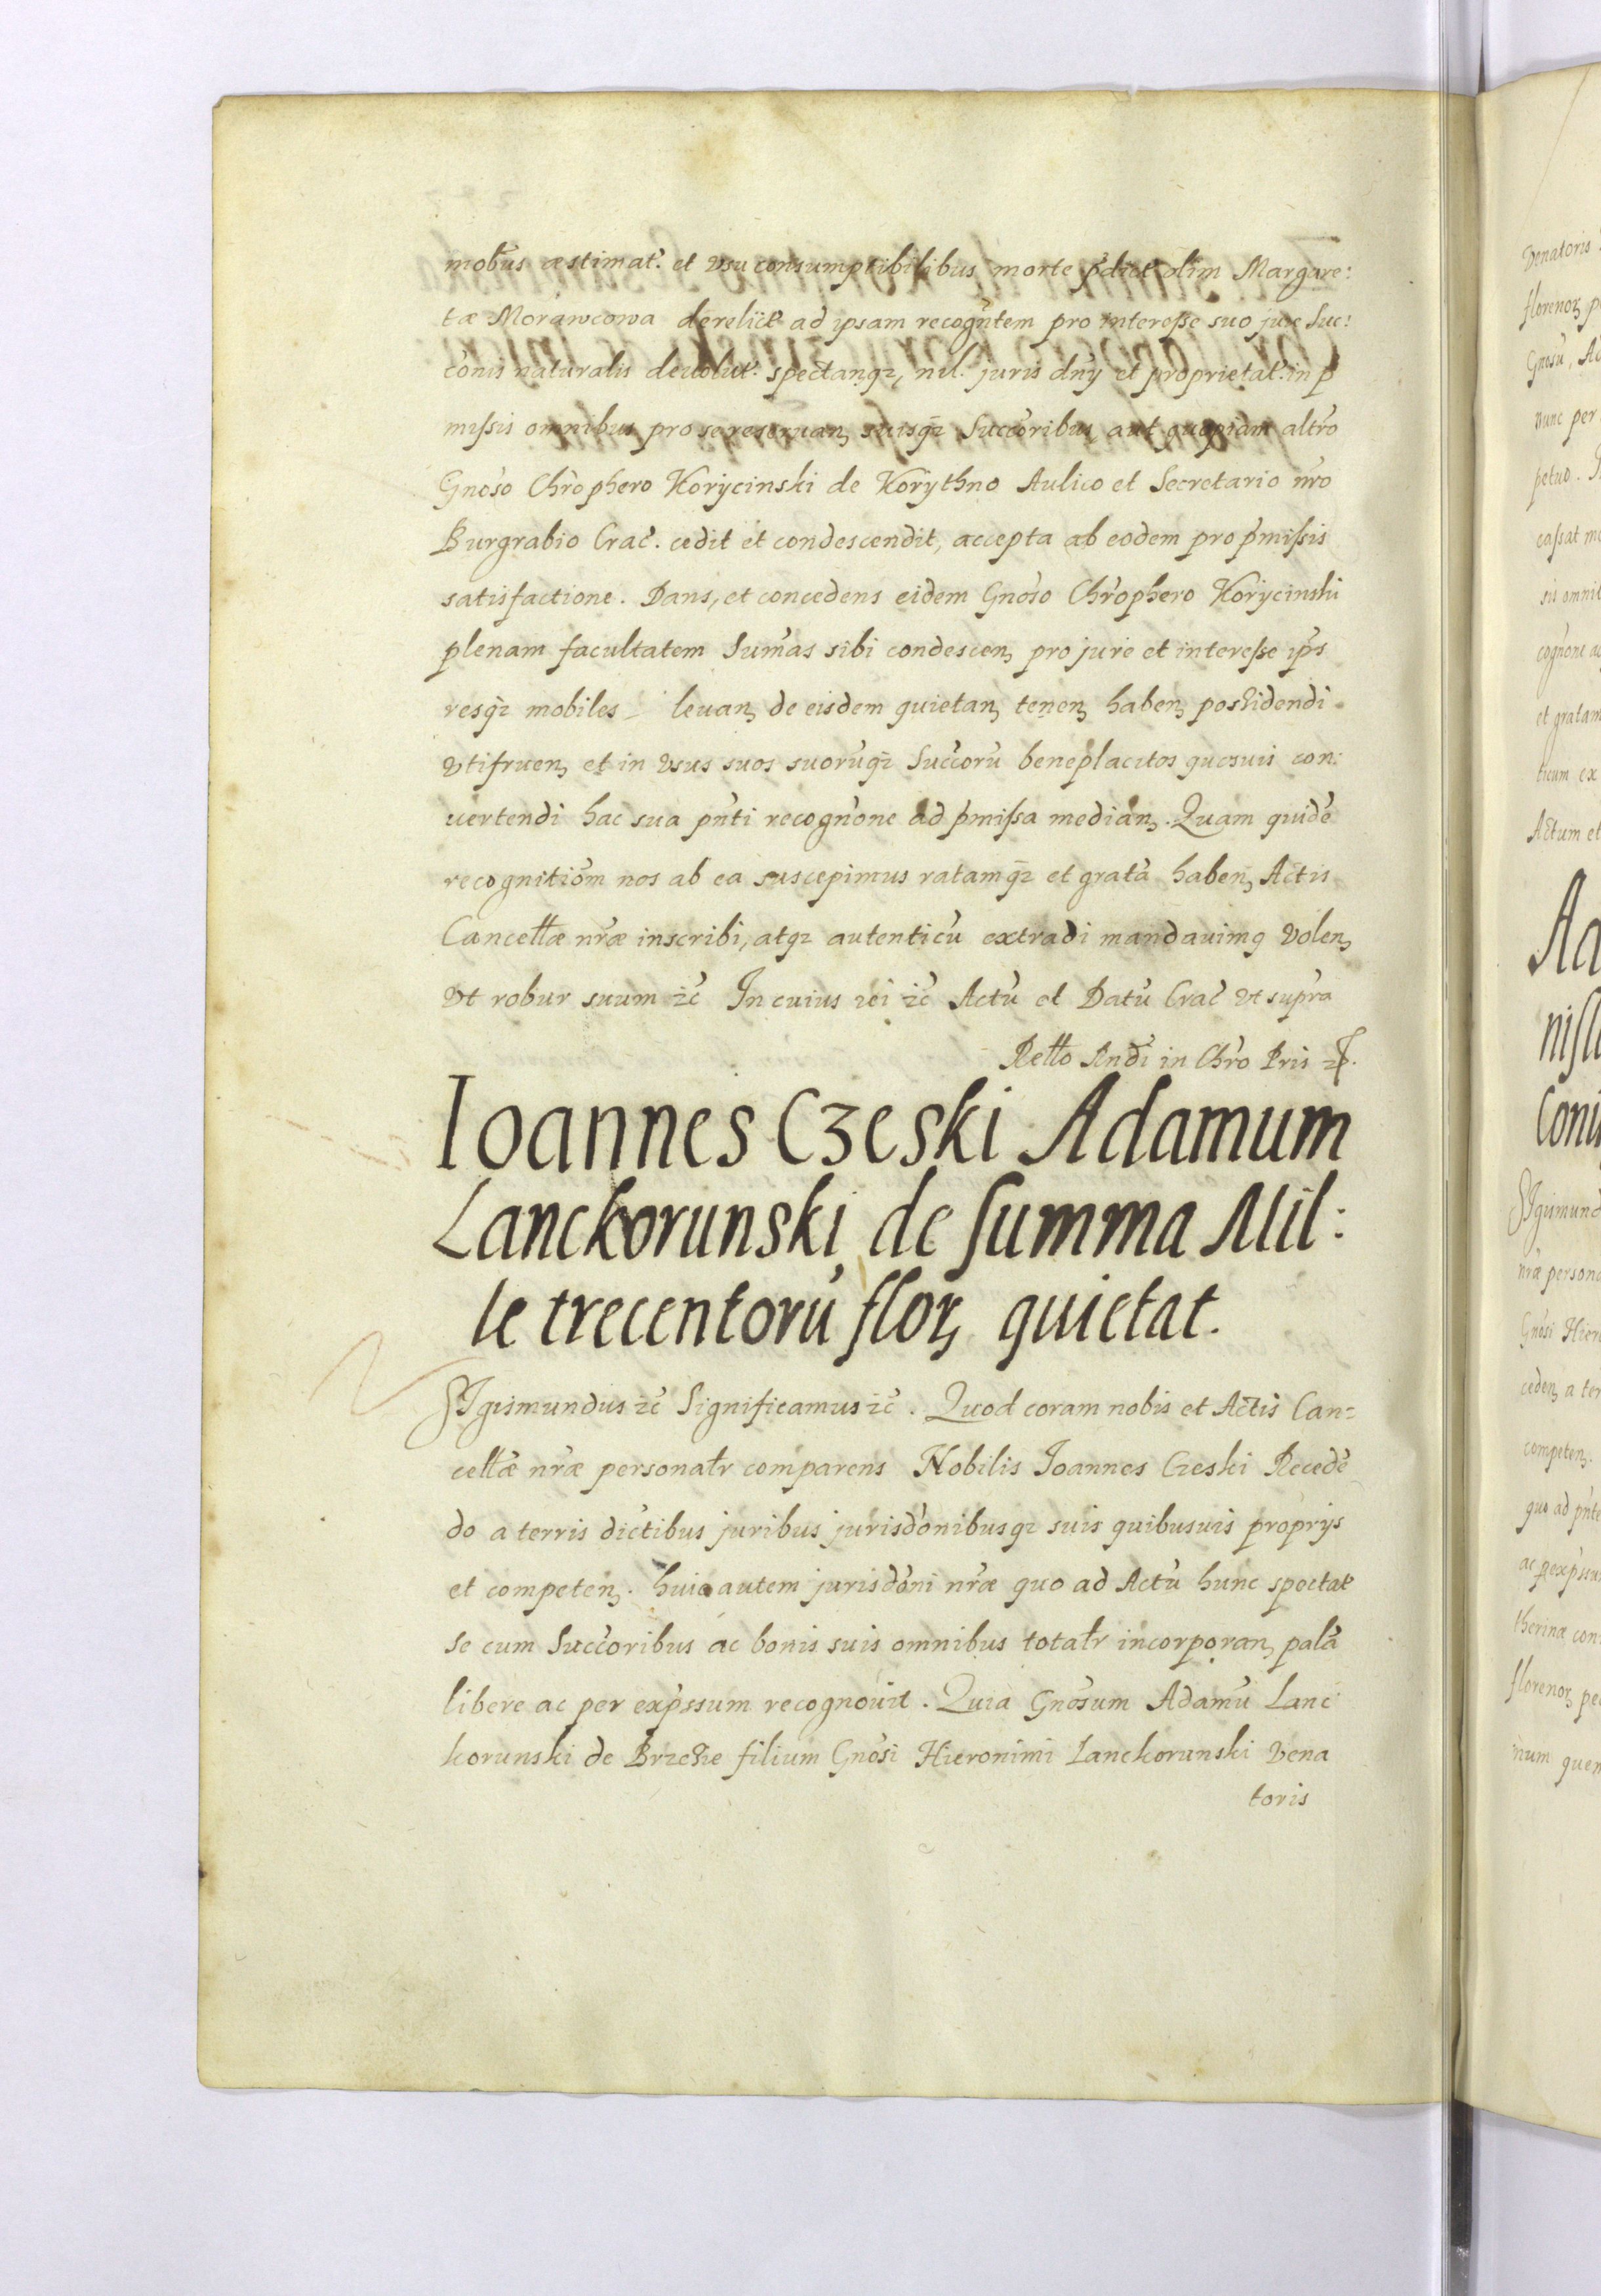 mobus æstimat. et vsu consumptibilibus morte pdict olim Margare:
tæ Morawcowa derelict ad ipsam recogntem pro interesse suo jure Suc:
conis naturalis deuolut. spectanqz, nil juris dny et proprietat. in p
missis omnibus pro se reseruan suisqz Succoribus aut quopiam altro
Gnoso Chrophero Korycinski de Korythno Aulico et Secretario nro
Burgrabio Crac. cedit et condescendit, accepta ab eodem pro pmissis
satisfactione. Dans, et concedens eidem Gnoso Chrophero Korycinski
plenam facultatem Sumas sibi condescen pro jure et interesse ips
resqz mobiles leuan de eisdem quietan tenen haben possidendi
vtifruen et in vsus suos suoruqz Succoru beneplacitos quosuis con:
uertendi hac sua pnti recognone ad pmissa median. Quam quide
recognitiom nos ab ea suscepimus ratamqz et grata haben Actis
Cancellæ nræ inscribi, atqz autenticu extradi mandauimq volen
vt robur suum zc In cuius rei zc Actu et Datu Crac vt supra
Rello Rndi in Chro Pris zc.
Ioannes Czeski Adamum
Lanckorunski de summa Mil:
le trecentorũ flor quietat.
SIgismundus zc Significamus zc. Quod coram nobis et Actis Can=
cellæ nræ personalr comparens Nobilis Joannes Czeski Recede
do a terris dictibus juribus jurisdonibusqz suis quibusuis proprys
et competen. huic autem jurisdoni nræ quo ad Actu hunc spectat
se cum Succoribus ac bonis suis omnibus totalr incorporan pala
libere ac per expssum recognouit. Quia Gnosum Adamu Lanc
korunski de Brzezie filium Gnosi Hieronimi Lanckorunski Vena
toris